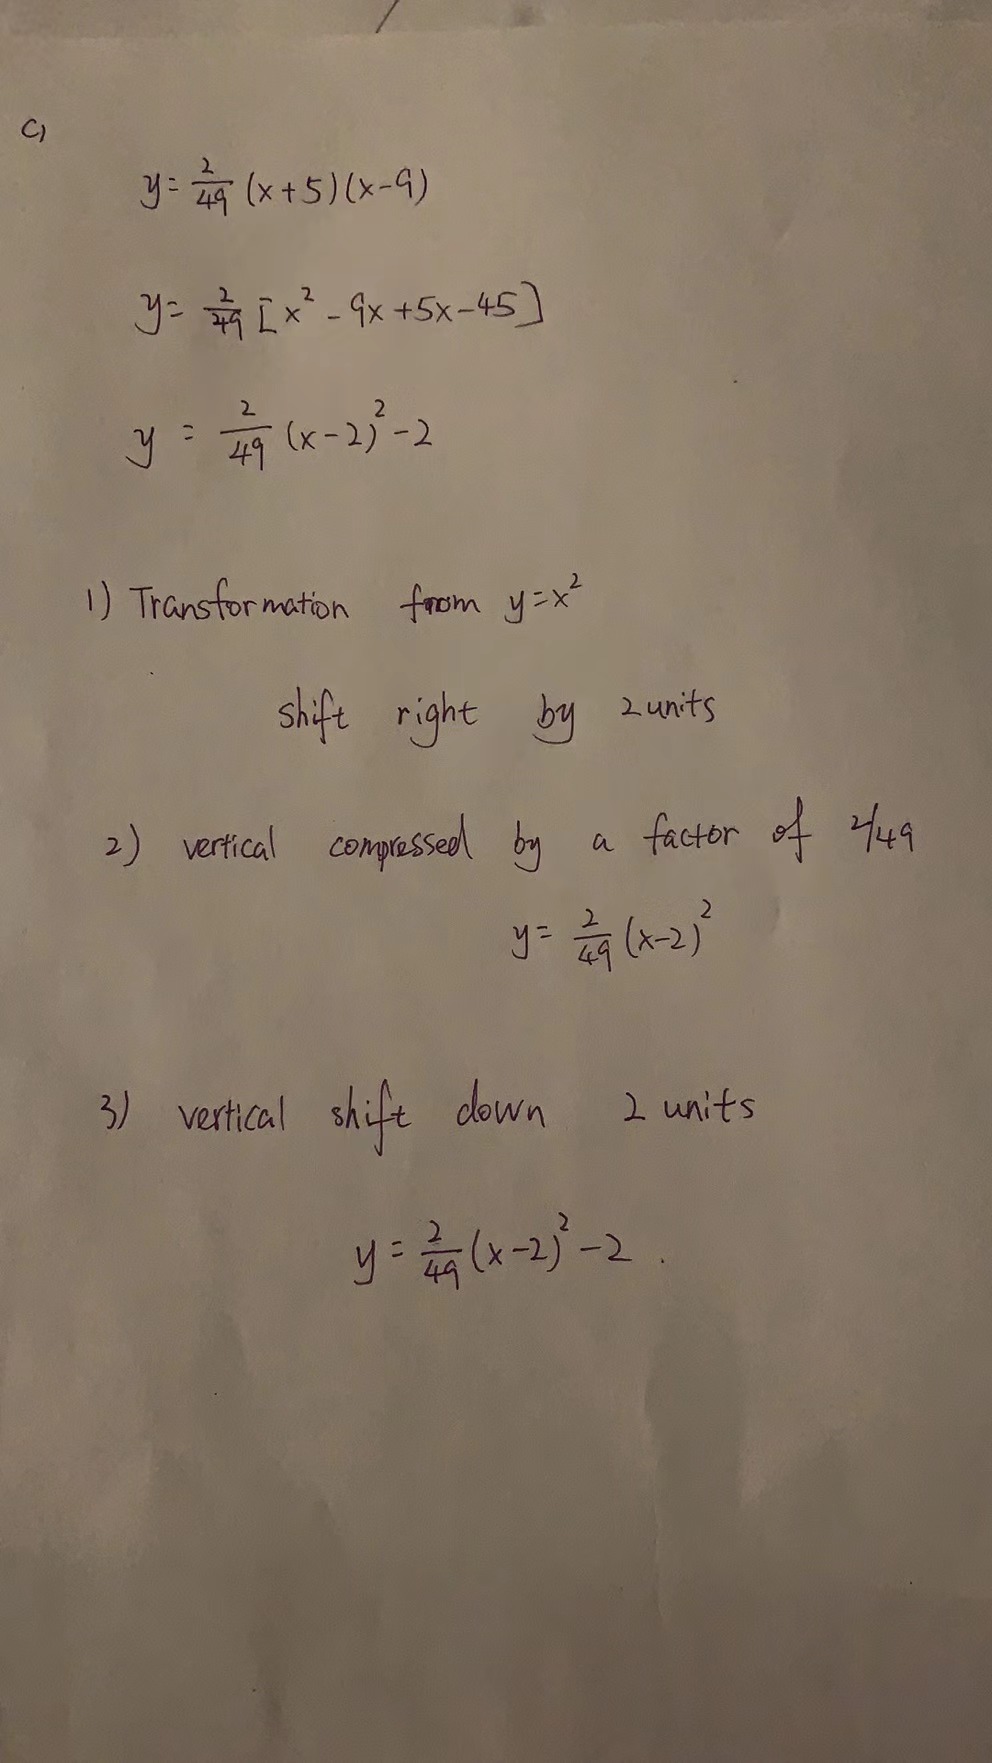 c)
y = 2/49 (x+5)(x-9)
y = 2/49 [x² - 9x + 5x - 45]
y = 2/49 (x-2)² - 2
1) Transformation from y=x²
shift right by 2 units
2) vertical compressed by a factor of 2/49
y = 2/49 (x-2)²
3) vertical shift down 2 units
y = 2/49 (x-2)² - 2 .